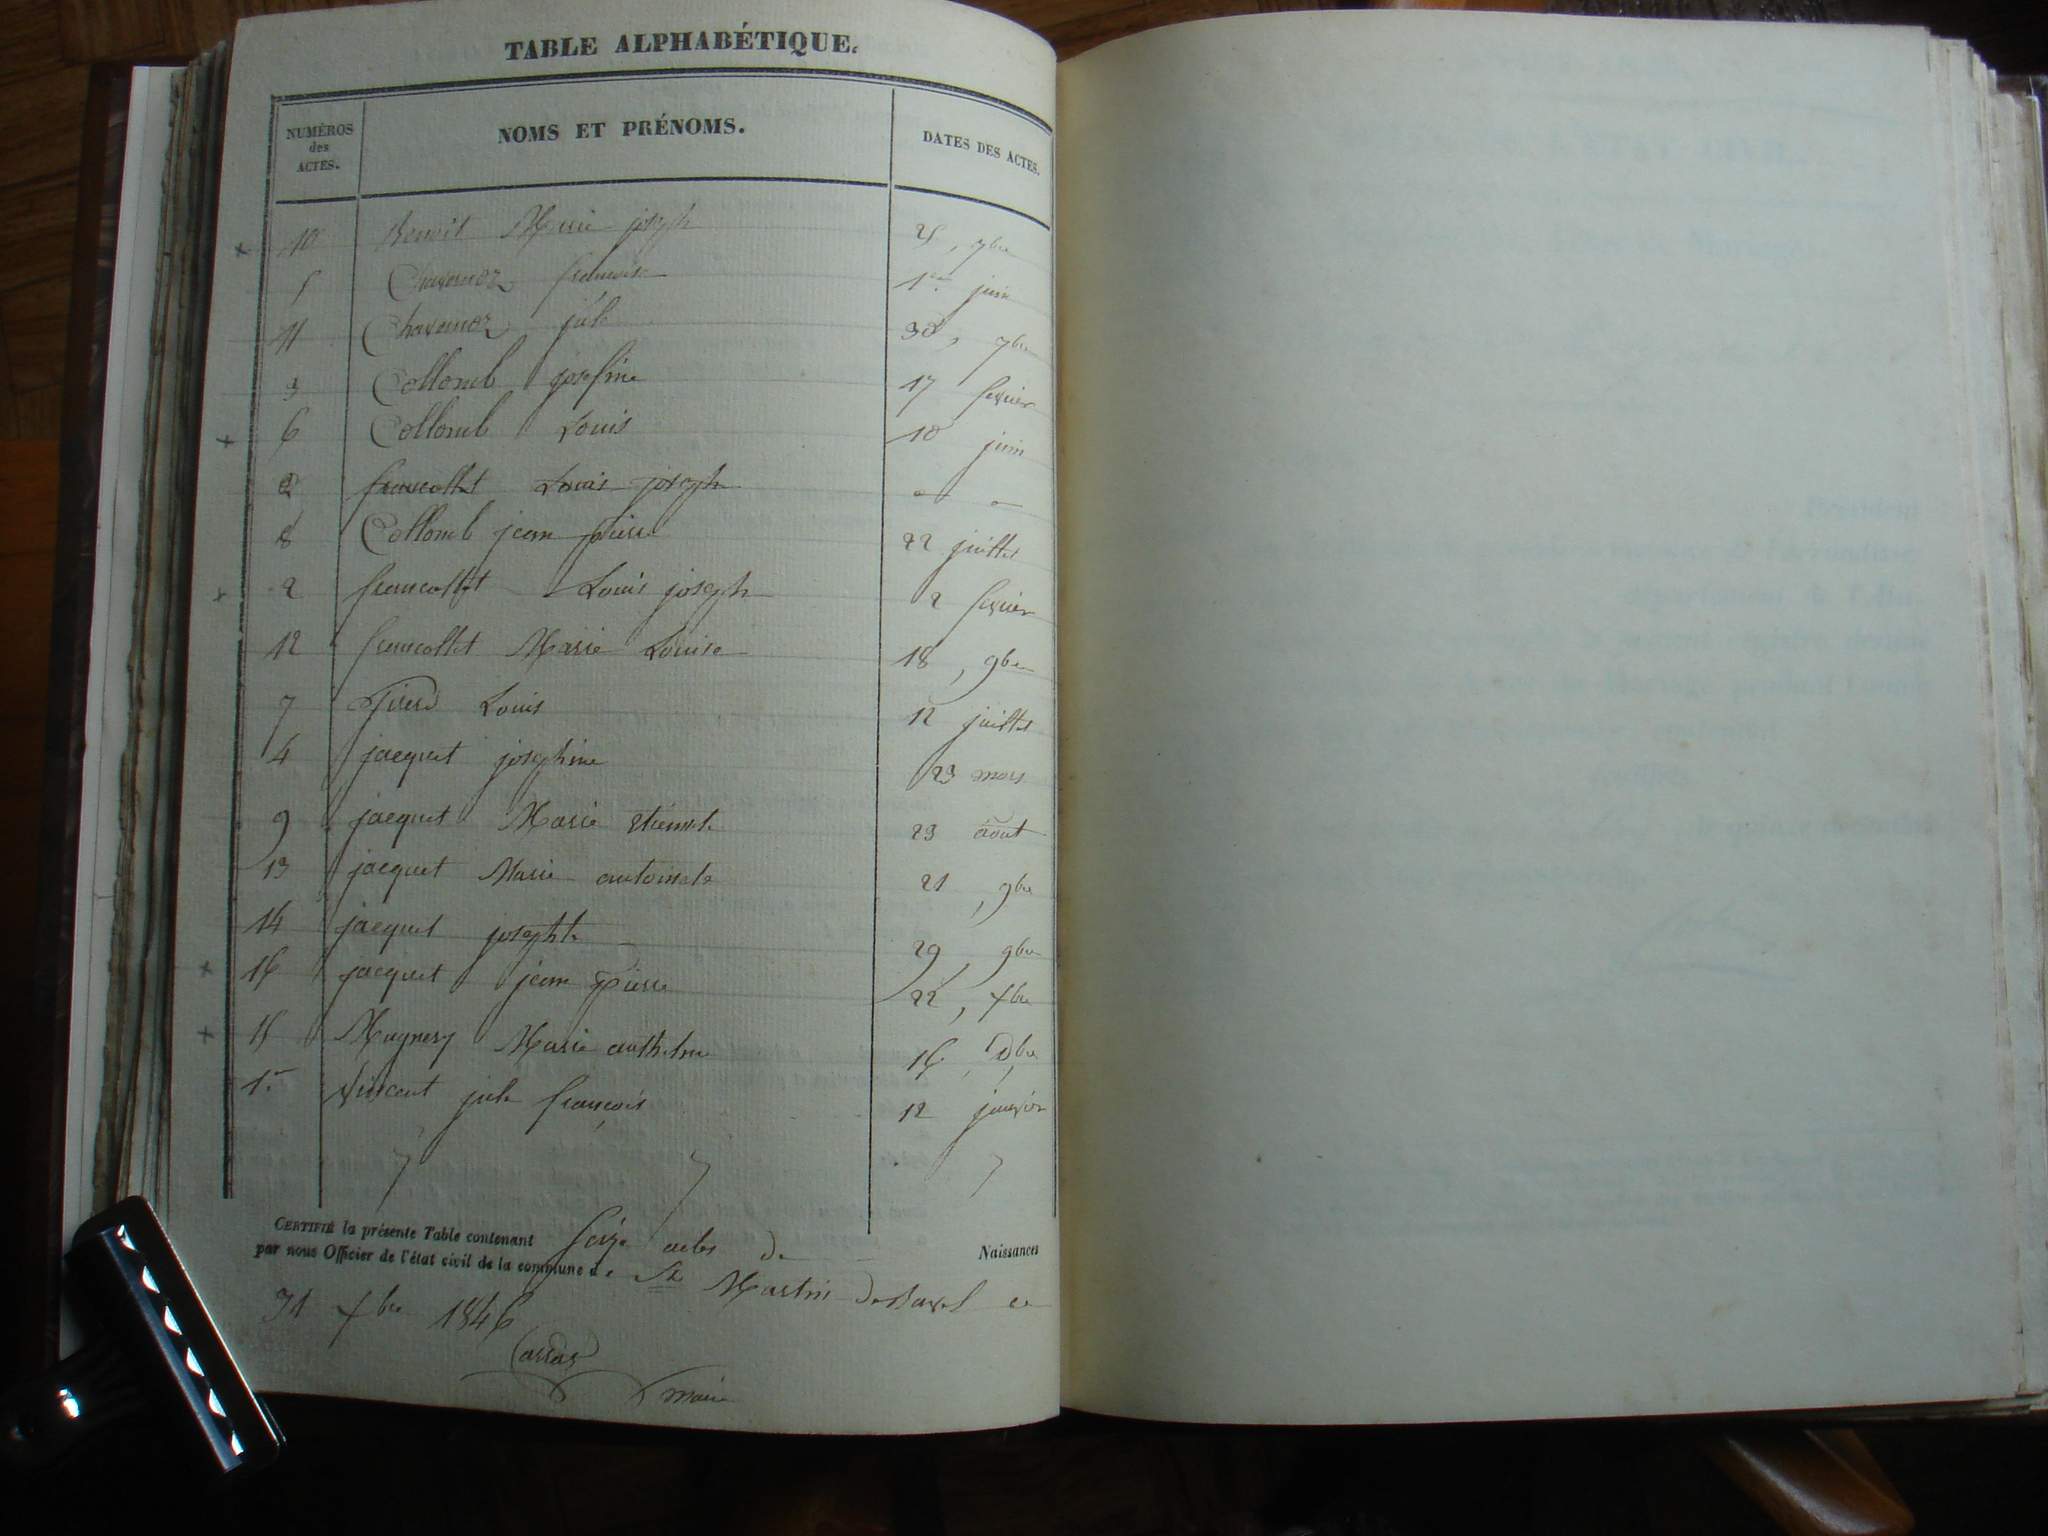 TABLE ALPHABÉTIQUE.
NUMÉROS des ACTES. NOMS ET PRÉNOMS. DATES DES ACTES.
10 Benoit Marie joseph 25, 7bre
5 Chavanoz francoise 1er juin
11 Chavanoz jule 30, 7bre
3 Collomb josefine 17 fevrier
6 Collomb Louis 10 juin
2 francollet Louis joseph
8 Collomb jean pierre 22 juillet
2 francollet Louis joseph 2 fevrier
12 francollet Marie Louise 18, 9bre
7 Louis 12 juillet
4 jacquet josephine 23 mars
9 jacquet Marie 23 aout
13 jacquet Marie antoinete 21, 9bre
14 jacquet josephte 29, 9bre
16 jacquet jean pierre 22, Xbre
15 Marie anthelme 16,
1er Vincent jule françois 12 janvier
CERTIFIÉ la présente Table contenant Seize actes de Naissances
par nous Officier de l'état civil de la commune de St Martin de Bavel ce
31 Xbre 1846
maire